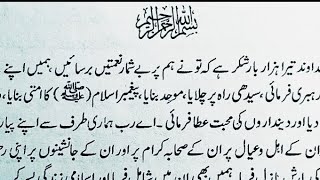 بسم الله الرحمن الرحيم
داوند تیرا ہزار بار شکر ہے کہ تو نے ہم پر بے شمار نعمتیں برسائیں، ہمیں اپنے
رہبری فرمائی، سیدھی راہ پر چلایا، موحد بنایا، پیغمبر اسلام (ﷺ) کا امتی بنایا،
دیا اور دینداروں کی محبت عطا فرمائی۔ اے رب ہماری طرف سے اپنے پیار
ان کے اہل و عیال پر ان کے صحابہ کرام پر اور ان کے جانشینوں پر اپنی رحم
نازل فرما، ہمیں بھی ان میں شامل فرما اور اسلامی زندگی بسر